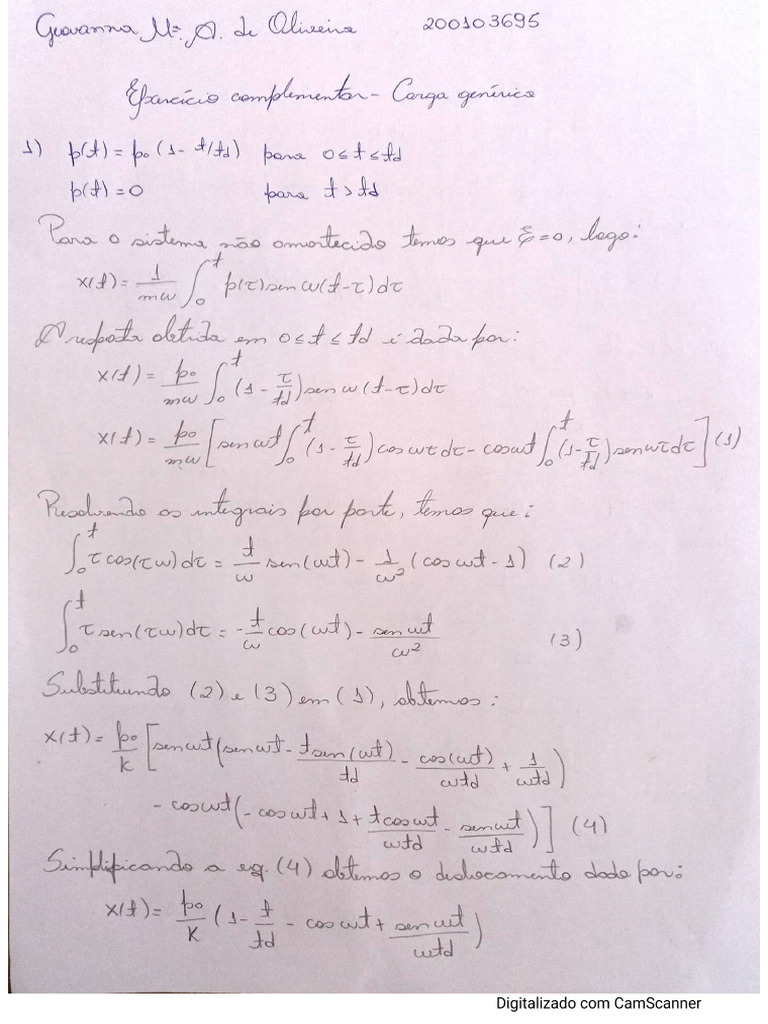 Geovanna Mª. A. de Oliveira 200103695
Exercício complementar - Carga genérica
1) p(t) = p₀ (1 - t/td) para 0 ≤ t ≤ td
p(t) = 0 para t > td
Para o sistema não amortecido temos que ξ = 0, logo:
x(t) = 1/mω ∫₀ᵗ p(τ) sen ω(t-τ) dτ
A resposta obtida em 0 ≤ t ≤ td é dada por:
x(t) = p₀/mω ∫₀ᵗ (1 - τ/td) sen ω (t-τ) dτ
x(t) = p₀/mω [sen ωt ∫₀ᵗ (1 - τ/td) cos ωτ dτ - cos ωt ∫₀ᵗ (1 - τ/td) sen ωτ dτ] (1)
Resolvendo as integrais por parte, temos que:
∫₀ᵗ τ cos(τω) dτ = t/ω sen(ωt) - 1/ω² (cos ωt - 1) (2)
∫₀ᵗ τ sen(τω) dτ = -t/ω cos(ωt) - sen ωt/ω² (3)
Substituindo (2) e (3) em (1), obtemos:
x(t) = p₀/k [sen ωt (sen ωt - t sen(ωt)/td - cos(ωt)/ωtd + 1/ωtd)
- cos ωt (- cos ωt + 1 + t cos ωt/ωtd - sen ωt/ωtd)] (4)
Simplificando a eq. (4) obtemos o deslocamento dado por:
x(t) = p₀/k (1 - t/td - cos ωt + sen ωt/ωtd)
Digitalizado com CamScanner